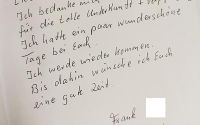 Ich bedanke mich
für die tolle Unterkunft +
Ich hatte ein paar wunderschöne
Tage bei Euch.
Ich werde wieder kommen.
Bis dahin wünsche ich Euch
eine gute Zeit
Frank